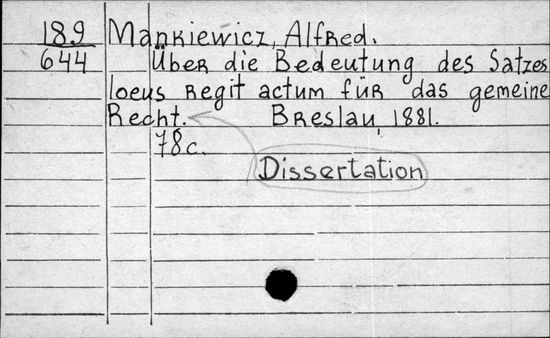 189 Mankiewicz, Alfred.
644 Über die Bedeutung des Satzes
locus regit actum für das gemeine
Recht. Breslau, 1881.
78c.
Dissertation